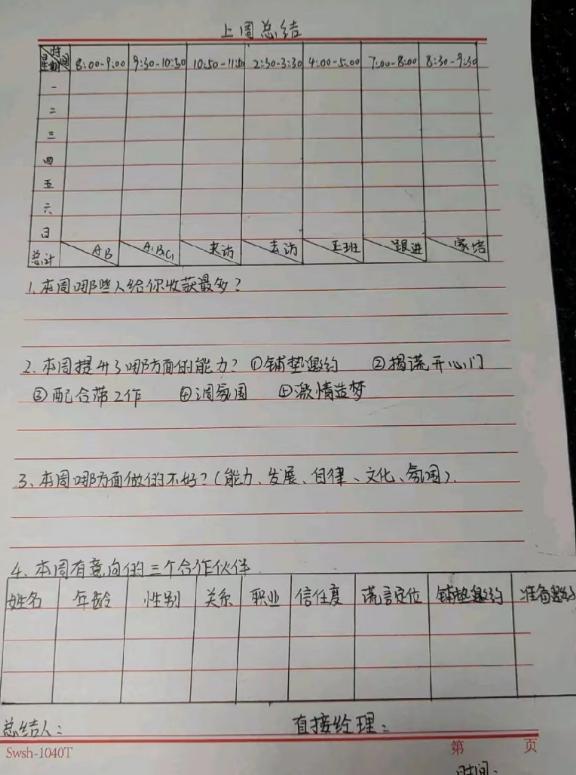 上周总结
时间 星期 8:00-9:00 9:30-10:30 10:50-11:50 2:30-3:30 4:00-5:00 7:00-8:00 8:30-9:30
一
二
三
四
五
六
日
总计 AB A.B.C 来访 去访 正班 跟进 家访
1.本周哪些人给你收获最多?
2.本周提升了哪方面的能力? ①铺垫邀约 ②揭谎开心门
③配合带工作 ④调氛围 ⑤激情造梦
3、本周哪方面做的不好?(能力、发展、自律、文化、氛围).
4、本周有意向的三个合作伙伴
姓名 年龄 性别 关系 职业 信任度 谎言定位 铺垫邀约 准备邀约
总结人: 直接经理:
Swsh-1040T 第 页
时间: